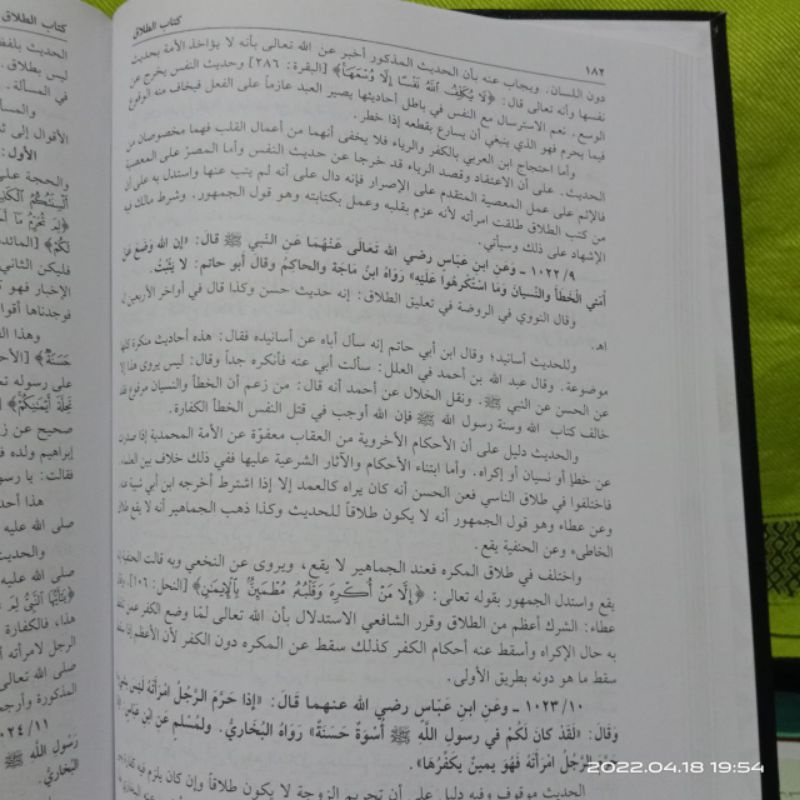 كتاب الطلاق
١٨٢
دون اللسان. ويجاب عنه بأن الحديث المذكور أخبر عن الله تعالى بأنه لا يؤاخذ الأمة بحديث
نفسها وأنه تعالى قال: ﴿لَا يُكَلِّفُ اللَّهُ نَفْسًا إِلَّا وُسْعَهَا﴾ [البقرة: ٢٨٦] وحديث النفس يخرج عن
الوسع. نعم الاسترسال مع النفس في باطل أحاديثها يصير العبد عازماً على الفعل فيخاف منه الوقوع
فيما يحرم فهو الذي ينبغي أن يسارع بقطعه إذا خطر.
وأما احتجاج ابن العربي بالكفر والرياء فلا يخفى أنهما من أعمال القلب فهما مخصوصان من
الحديث. على أن الاعتقاد وقصد الرياء قد خرجا عن حديث النفس وأما المصرّ على المعصية
فالإثم على عمل المعصية المتقدم على الإصرار فإنه دال على أنه لم يتب عنها واستدل به على أن
من كتب الطلاق طلقت امرأته لأنه عزم بقلبه وعمل بكتابته وهو قول الجمهور. وشرط مالك فيه
الإشهاد على ذلك وسيأتي.
٩/ ١٠٢٢ ـ وَعَن ابنِ عَبّاس رضي الله تَعَالَى عَنْهُمَا عَنِ النَّبي ﷺ قالَ: «إن الله وَضَعَ عَنْ
أُمّتي الْخَطَأَ والنِّسيانَ وَمَا اسْتُكْرِهُوا عَلَيْهِ» رَوَاهُ ابنُ مَاجَة والحاكِمُ وقالَ أبو حاتم: لا يَثْبُتُ.
وقال النووي في الروضة في تعليق الطلاق: إنه حديث حسن وكذا قال في أواخر الأربعين له
اهـ.
وللحديث أسانيد؛ وقال ابن أبي حاتم إنه سأل أباه عن أسانيده فقال: هذه أحاديث منكرة كلها
موضوعة. وقال عبد الله بن أحمد في العلل: سألت أبي عنه فأنكره جداً وقال: ليس يروى هذا إلا
عن الحسن عن النبي ﷺ. ونقل الخلال عن أحمد أنه قال: من زعم أن الخطأ والنسيان مرفوع فقد
خالف كتاب الله وسنة رسول الله ﷺ فإن الله أوجب في قتل النفس الخطأ الكفارة.
والحديث دليل على أن الأحكام الأخروية من العقاب معفوّة عن الأمة المحمدية إذا صدرت
عن خطإ أو نسيان أو إكراه. وأما ابتناء الأحكام والآثار الشرعية عليها ففي ذلك خلاف بين العلماء
فاختلفوا في طلاق الناسي فعن الحسن أنه كان يراه كالعمد إلا إذا اشترط أخرجه ابن أبي شيبة
وعن عطاء وهو قول الجمهور أنه لا يكون طلاقاً للحديث وكذا ذهب الجماهير أنه لا يقع طلاق
الخاطىء وعن الحنفية يقع.
واختلف في طلاق المكره فعند الجماهير لا يقع، ويروى عن النخعي وبه قالت الحنفية
يقع واستدل الجمهور بقوله تعالى: ﴿إِلَّا مَنْ أُكْرِهَ وَقَلْبُهُ مُطْمَئِنٌّ بِالْإِيمَٰنِ﴾ [النحل: ١٠٦]. وقال
عطاء: الشرك أعظم من الطلاق وقرر الشافعي الاستدلال بأن الله تعالى لمّا وضع الكفر عمن تلفظ
به حال الإكراه وأسقط عنه أحكام الكفر كذلك سقط عن المكره دون الكفر لأن الأعظم إذا سقط
سقط ما هو دونه بطريق الأولى.
١٠/ ١٠٢٣ ـ وعَنِ ابنِ عَبّاس رضي الله عنهما قَالَ: «إذا حَرَّمَ الرَّجُلُ امْرَأَتَهُ لَيْسَ بِشَيء
وَقَالَ: «لَقَدْ كانَ لَكُمْ في رسولِ اللَّهِ ﷺ أُسْوَةٌ حَسَنَةٌ» رَوَاهُ البُخَاريُّ. ولمُسْلمٍ عَنِ ابن عَبّاس
حَرَّمَ الرَّجُلُ امْرَأَتَهُ فَهُوَ يمينٌ يكفِّرُهَا».
الحديث موقوف وفيه دليل على أن تحريم الزوجة لا يكون طلاقاً وإن كان يلزم فيه
كتاب الطلاق
الحديث بلفظ
ليس بطلاق.
في المسألة.
والمسألة
الأقوال إلى
الأول:
والحجة على
لَكُمْ﴾ [المائدة
فليكن الثاني
الإخبار فهو
فوجدناها أقوا
وهذا
حَسَنَةٌ﴾
على رسوله
صحيح عن
إبراهيم ولده
فقالت: يا رسول
هذا أحد
صلى الله عليه
والحديث
صلى الله عليه
هذا، فالكفارة
الرجل لامرأته
صلى الله تعالى
المذكورة
١١/
رَسُولِ اللَّهِ ﷺ
البُخَاريُّ.
2022.04.18 19:54